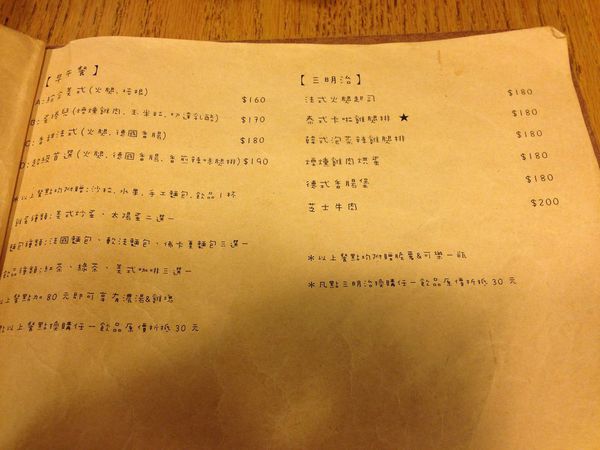 【早午餐】
A:綜合美式(火腿、培根) $160
B:蛋捲兒(煙燻雞肉、玉米粒、切達乳酪) $170
C:香雜法式(火腿、德國香腸) $180
D:超級首選(火腿、德國香腸、香煎辣味腿排) $190
以上餐點均附贈:沙拉、水果、手工麵包、飲品1杯
雞蛋種類:美式炒蛋、太陽蛋二選一
麵包種類:法國麵包、軟法麵包、佛卡夏麵包三選一
飲品種類:紅茶、綠茶、美式咖啡三選一
以上餐點加80元即可享有濃湯&雞塊
點以上餐點換購任一飲品原價折抵30元
【三明治】
法式火腿起司 $180
泰式卡啦雞腿排 ★ $180
韓式泡菜辣雞腿排 $180
煙燻雞肉烘蛋 $180
德式香腸堡 $180
芝士牛肉 $200
*以上餐點均附贈脆薯&可樂一瓶
*凡點三明治換購任一飲品原價折抵30元